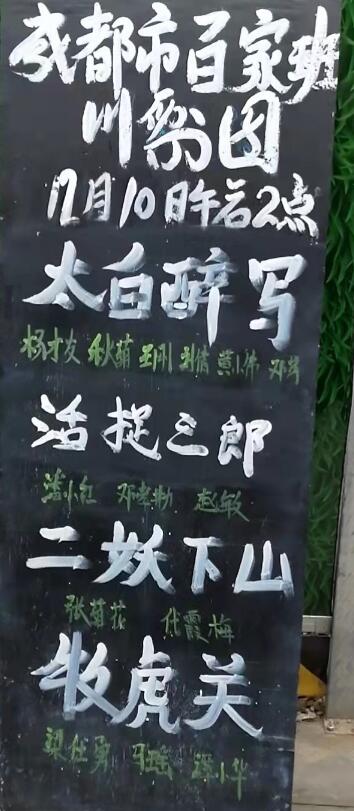 成都市百家班
川剧团
12月10日午后2点
太白醉写
杨才友 秋菊 王刚 刘倩 黄小伟 邓军
活捉三郎
邓孝勤 赵敏
二妖下山
张菊花 代霞梅
牧虎关
梁任勇 马瑶